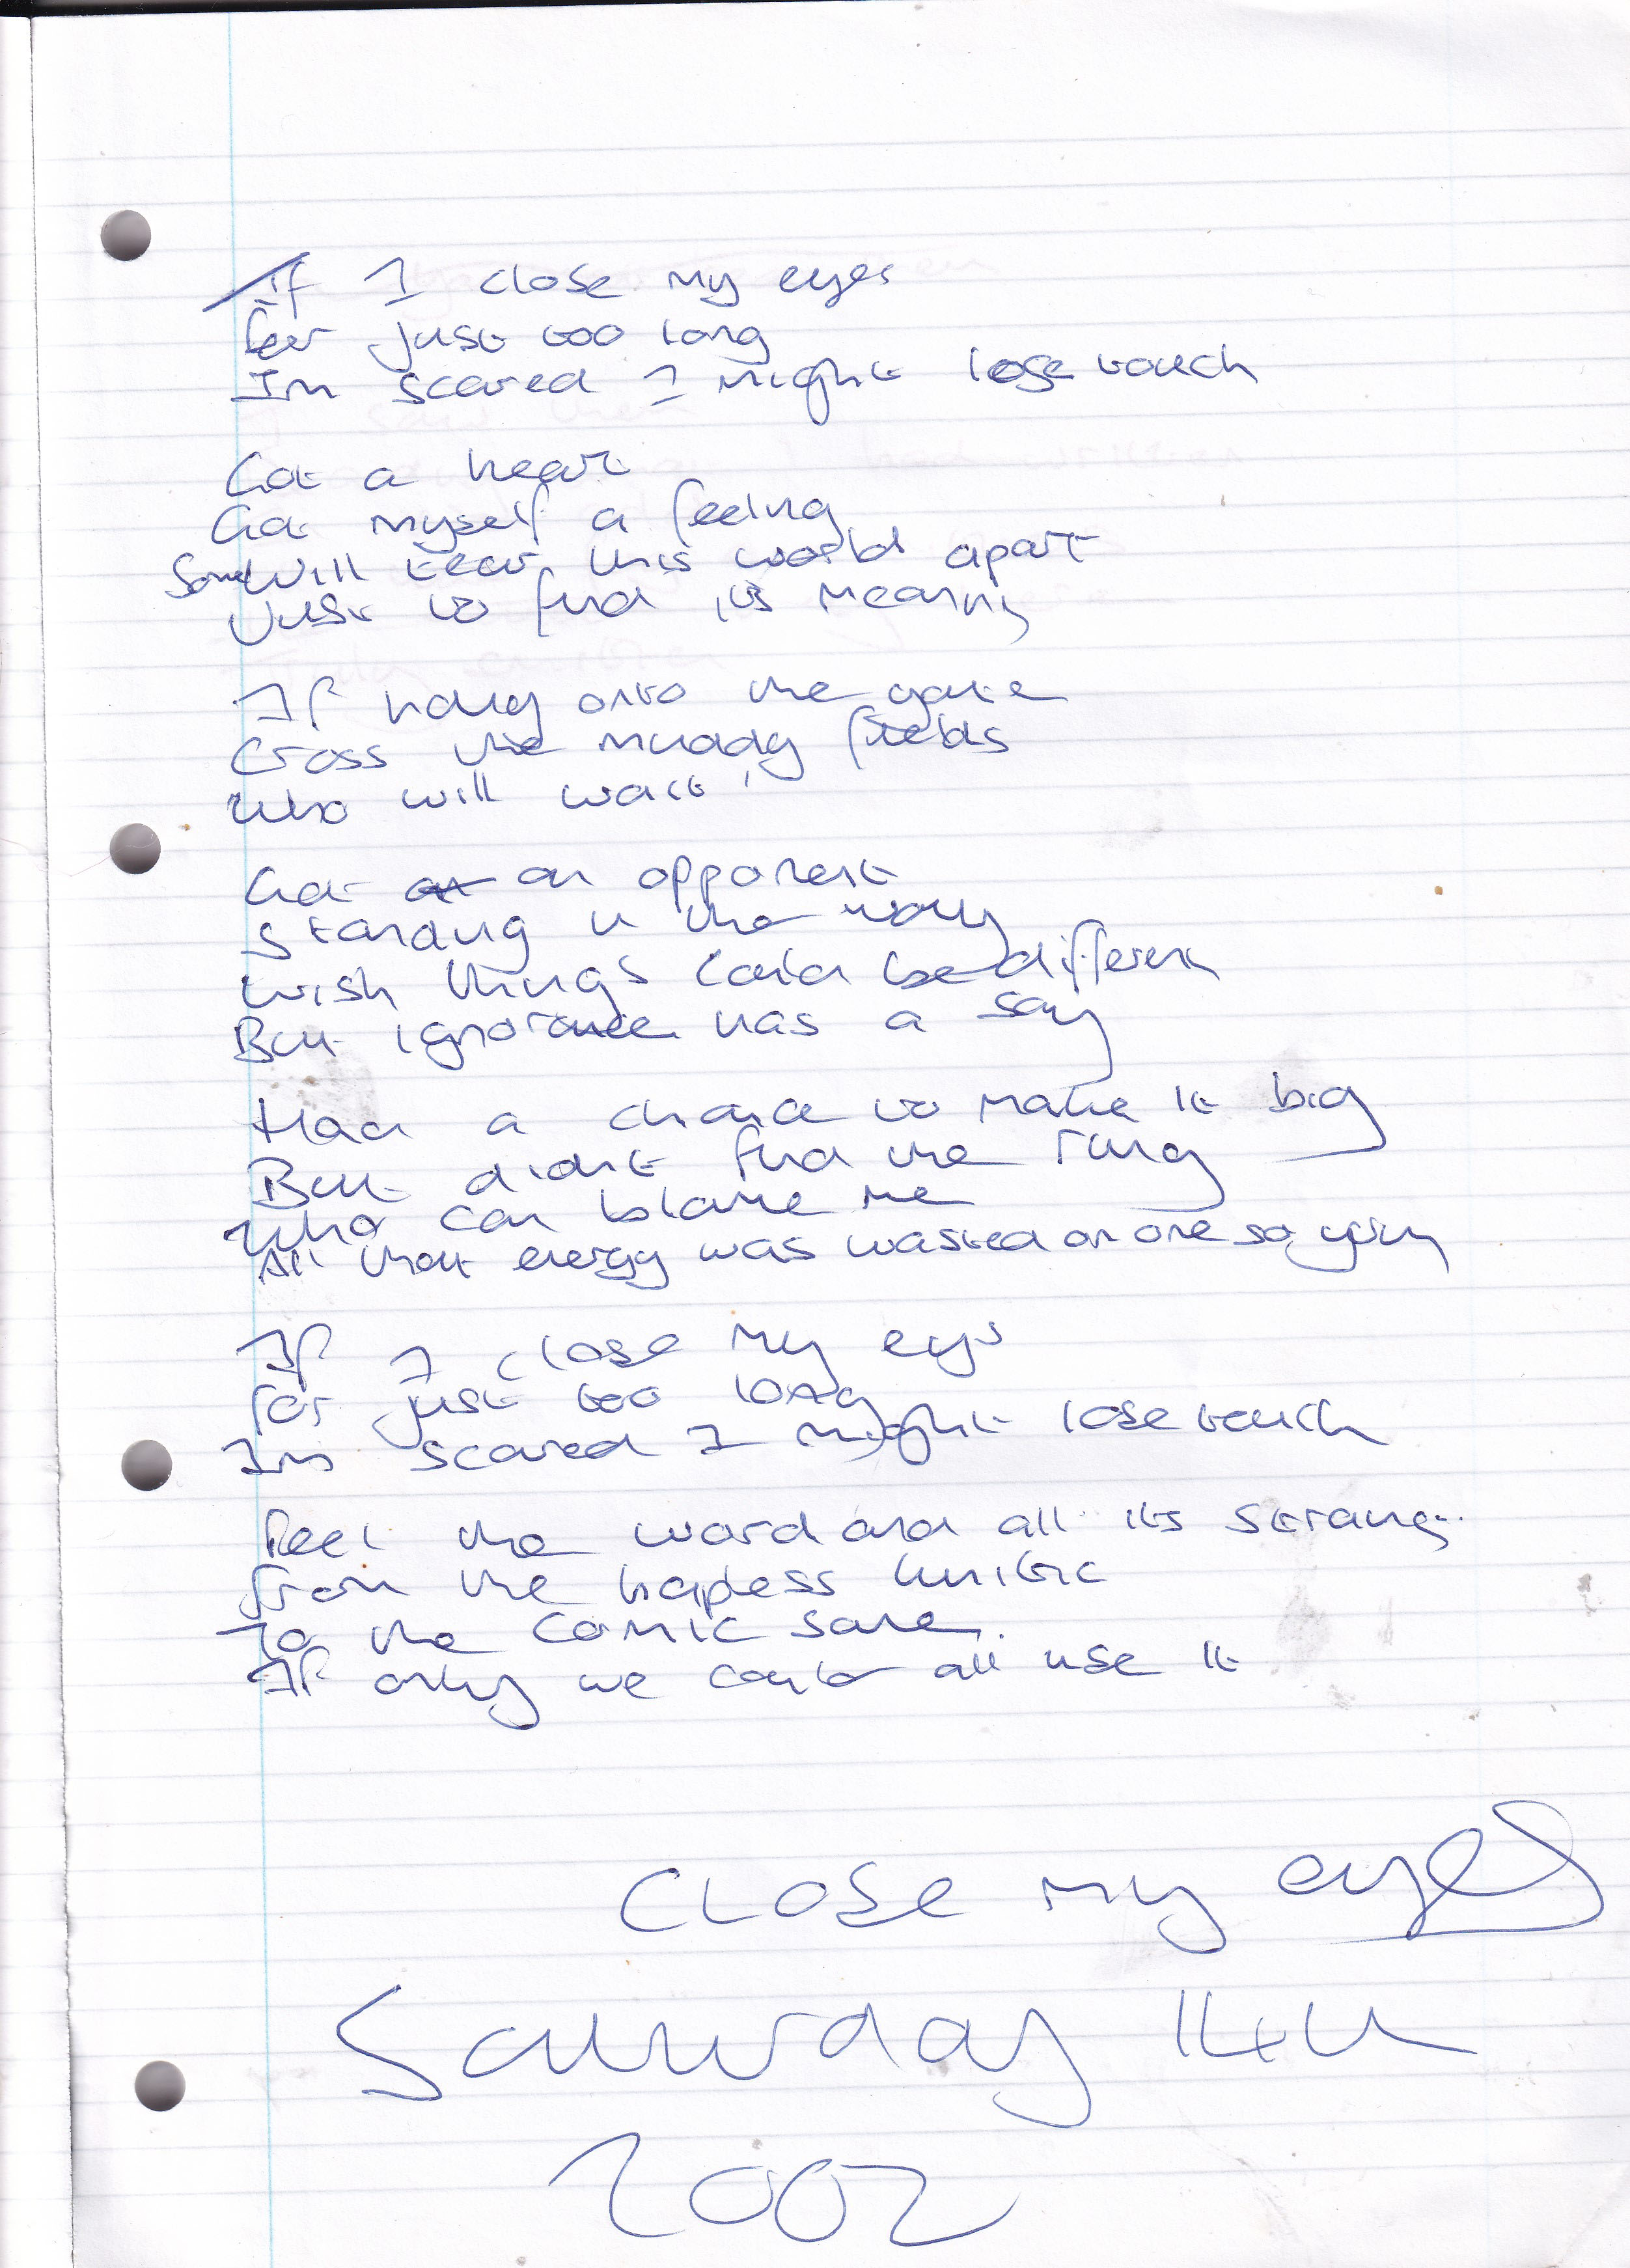 If I close my eyes
for just too long
Im scared I might lose touch
Got a heart
Got myself a feeling
Some will tear this world apart
Just to find its meaning
If hang onto the gate
Cross the muddy fields
Who will wait
Got an an opponent
Standing in the way
wish things could be different
But ignorance has a say
Had a chance to make it big
But didnt find the ring
Who can blame me
All that energy was wasted on one so
If I close my eyes
for just too long
Im scared I might lose touch
feel the word and all its
from the hapless lunitic
To the comic sane
If only we could all use it
Close my eyes
Saturday
2002